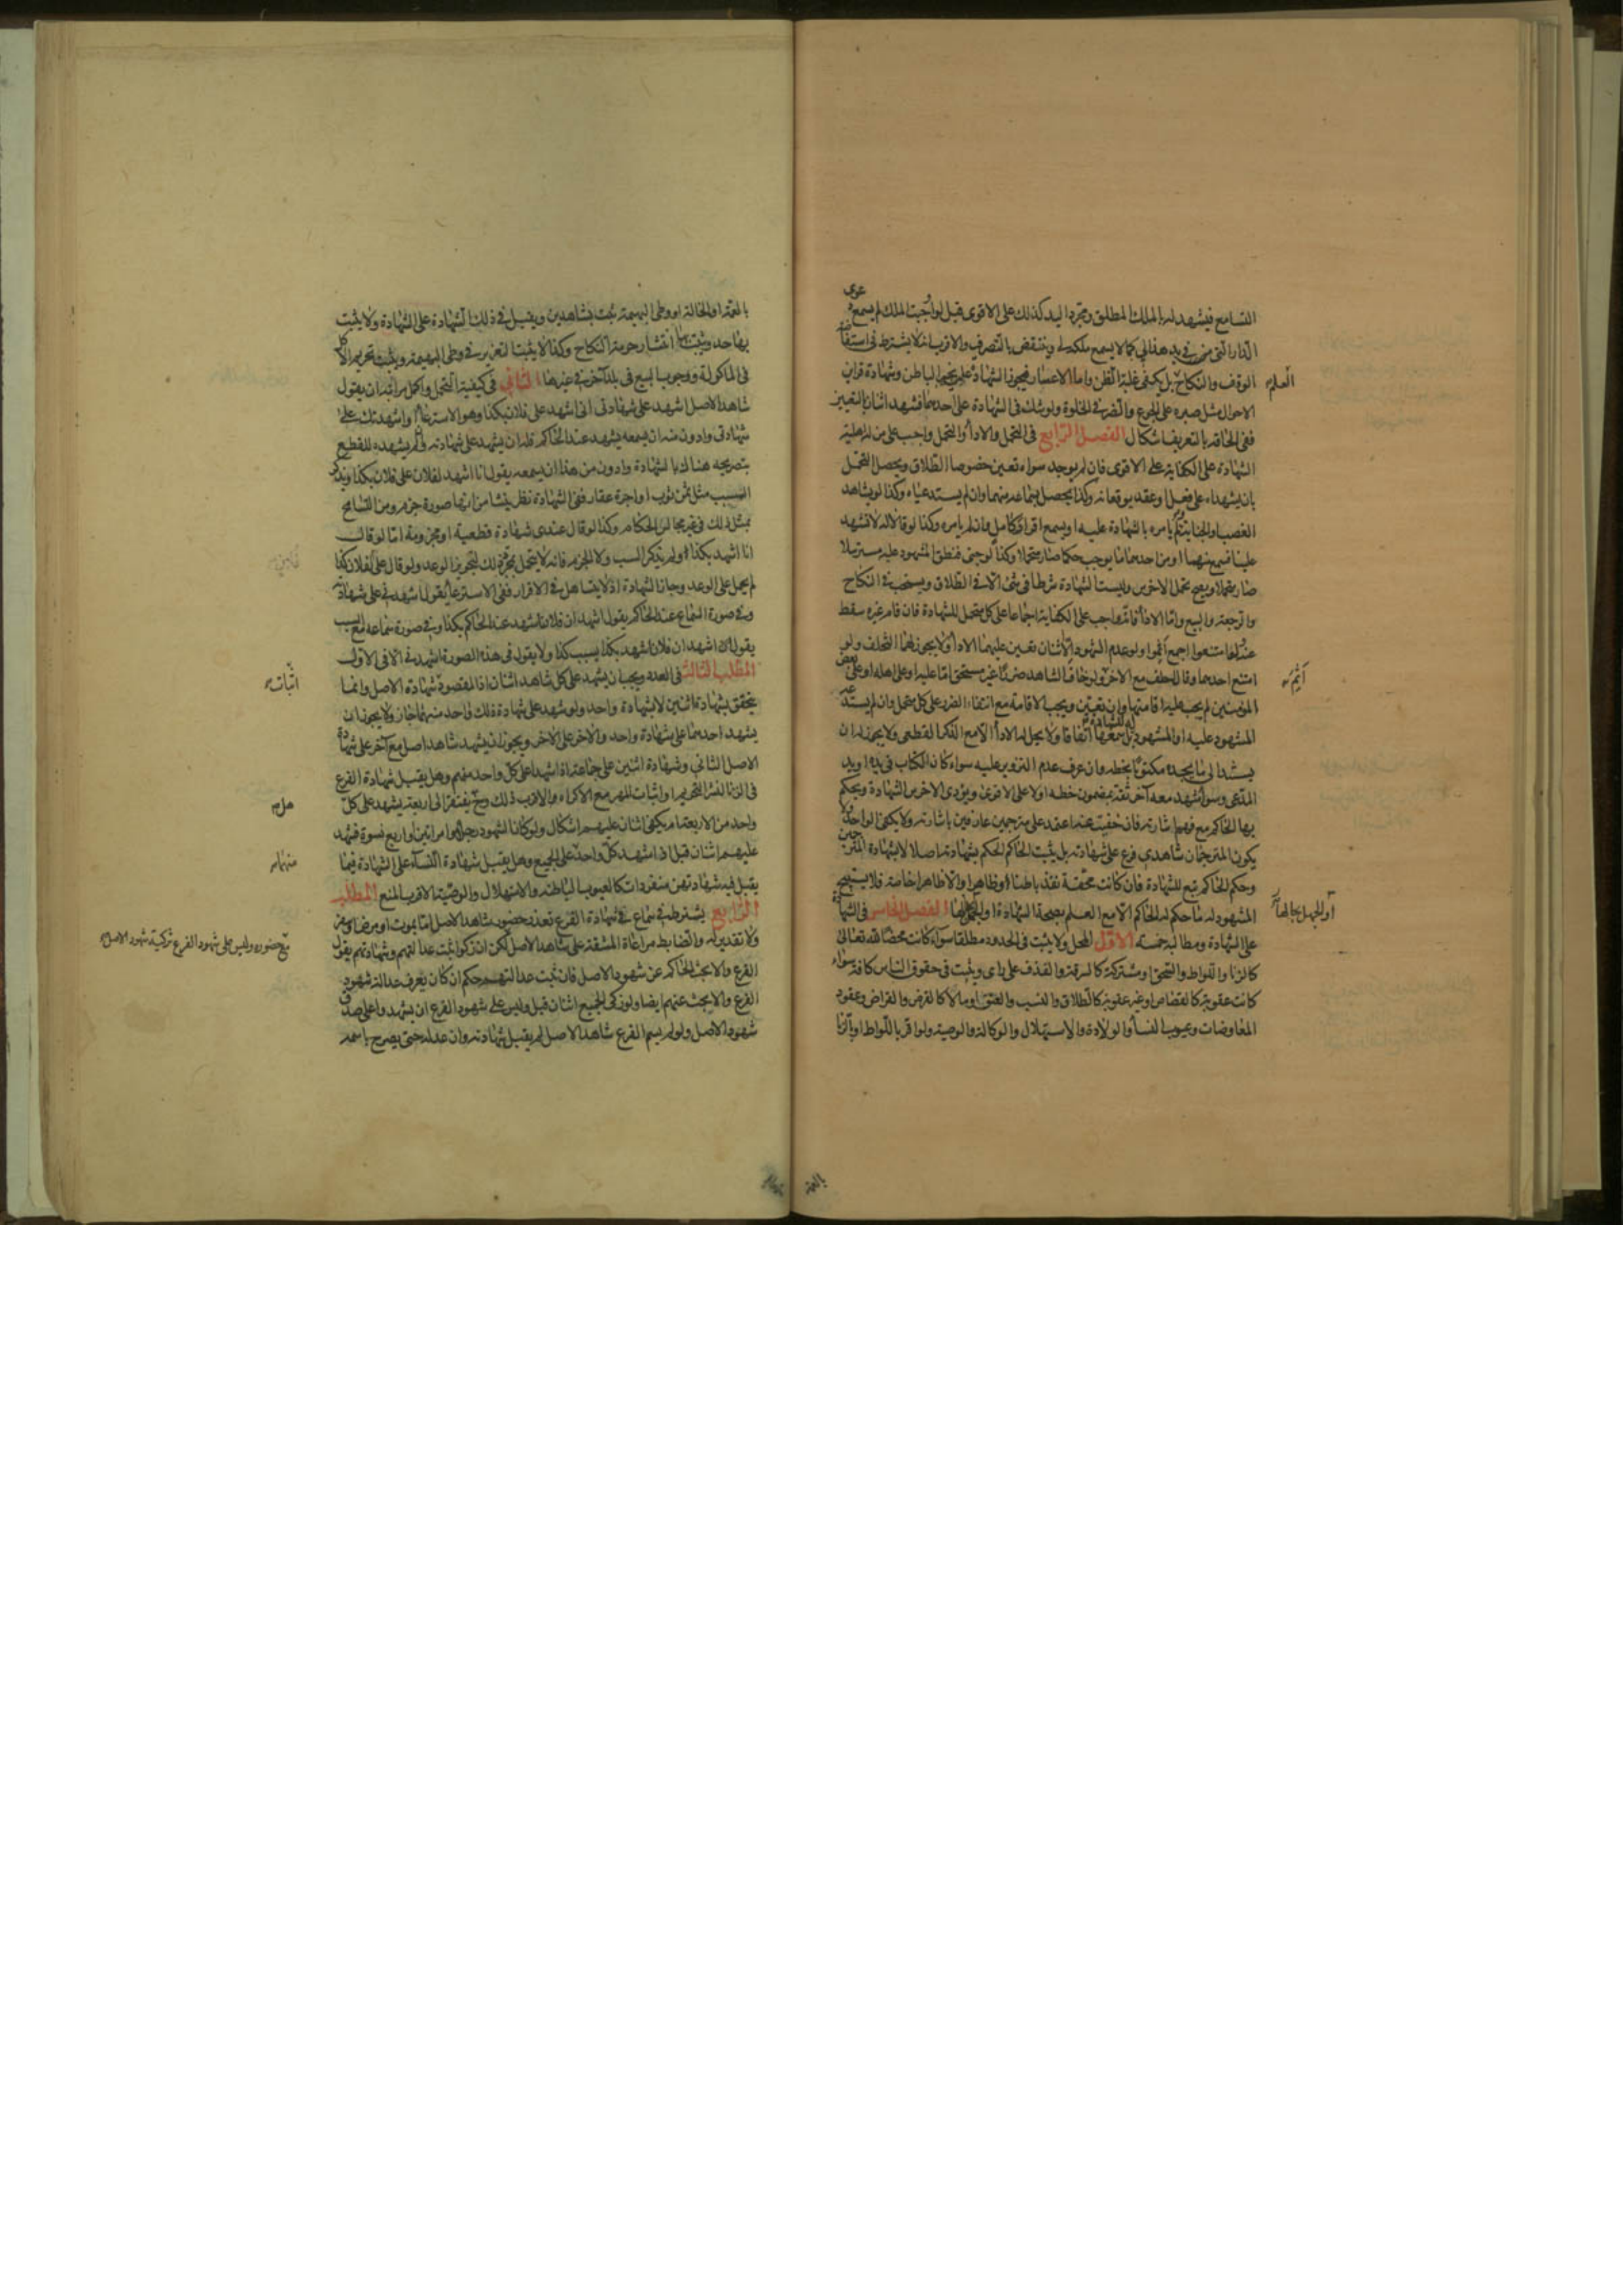 التسامع فيشهد له بالملك المطلق ومجرد اليد كذلك على الاقوى قيل لو اوجبت الملك لم يسمع دعوى
الدار التي في يد هذا لي كما لا يسمع ملكه لي وينتقض بالتصرف والاقرب انه لا يشترط في استفاضة
الوقف والنكاح العلم بل يكفي غلبة الظن واما الاعسار فيجوز الشهادة عليه بخبرة الباطن وشهادة قراين
الاحوال مثل صبره على الجوع والضر في الخلوة ولو شك في الشهادة على احدهما فشهد اثنان بالتعيين
ففي الحاقه بالتعريف اشكال الفصل الرابع في التحمل والاداء والتحمل واجب على من له اهلية
الشهادة على الكفاية على الاقوى فان لم يوجد سواه تعين خصوصا الطلاق ويحصل التحمل
بان يشهداه على فعل او عقد يوقعانه وكذا يحصل بسماعه منهما وان لم يستدعياه وكذا لو يشاهد
الغصب او الجناية ولم يأمره بالشهادة عليه او يسمع اقرار كامل وان لم يأمره وكذا لو قالا له لا تشهد
علينا فسمع منهما او من احدهما ما يوجب حكما صار متحملا وكذا لو خبى فنطق المشهود عليه مسترسلا
صار متحملا ويصح تحمل الاخرس وليست الشهادة شرطا في شيء الا في الطلاق ويستحب في النكاح
والرجعة والبيع واما الاداء فانه واجب على الكفاية اجماعا على كل متحمل للشهادة فان قام غيره سقط
عنه ولو امتنعوا اجمع اثموا ولو عدم الشهود الا اثنان تعين عليهما الاداء ولا يجوز لهما التخلف ولو
امتنع احدهما وقال احلف مع الاخر اثم ولو خاف الشاهد ضررا غير مستحق اما عليه او على اهله او على بعض
المؤمنين لم يجب عليه اقامتها وان تعين ويجب الاقامة مع انتفاء الضرر على كل متحمل وان لم يستدعه
المشهود عليه او المشهود له للشهادة بل سمعها اتفاقا ولا يحل له الاداء الا مع الذكر القطعي ولا يجوز له ان
يستند الى ما يجده مكتوبا بخطه وان عرف عدم التزوير عليه سواء كان الكتاب في يده او يد
المدعي وسواء شهد معه آخر ثقة بمضمون خطه اولا على الاقوى ويؤدي الاخرس الشهادة ويحكم
بها الحاكم مع فهم اشارته فان خفيت عنه اعتمد على مترجمين عارفين باشارته ولا يكفي الواحد ولا
يكون المترجمان شاهدي فرع على شهادته بل يثبت الحاكم الحكم بشهادته اصلا لا بشهادة المترجمين
وحكم الحاكم تبع للشهادة فان كانت محقة نفذ باطنا وظاهرا والا ظاهرا خاصة فلا يستبيح
المشهود له ما حكم له الحاكم الا مع العلم بصحة الشهادة او الجهل بحالها الفصل الخامس في الشهادة
على الشهادة ومطالبه خمسة الاول المحل ولا يثبت في الحدود مطلقا سواء كانت محضا لله تعالى
كالزنا واللواط والسحق او مشتركة كالسرقة والقذف على رأي ويثبت في حقوق الناس كافة سواء
كانت عقوبة كالقصاص او غير عقوبة كالطلاق والنسب والعتق او مالا كالقرض والقراض وعقود
المعاوضات وعيوب النساء والولادة والاستهلال والوكالة والوصية ولو اقر باللواط او بالزنا
العلم
اثم
او الجهل بحالها
بالعمة
بالعمة او الخالة او وطى البهيمة ثبت بشاهدين ويقبل في ذلك الشهادة على الشهادة ولا يثبت
بها حد ويثبت انتشار حرمة النكاح وكذا لا يثبت التعزير في وطى البهيمة ويثبت تحريم الاكل
في الماكولة ووجوب البيع في بلد آخر في غيرها الثاني في كيفية التحمل واكمل مراتبه ان يقول
شاهد الاصل اشهد على شهادتي اني اشهد على فلان بكذا وهو الاسترعاء او اشهدتك على
شهادتي وادون منه ان يسمعه يشهد عند الحاكم فله ان يشهد على شهادته وان لم يشهده للقطع
بتصريحه هناك بالشهادة وادون من هذا ان يسمعه يقول انا اشهد لفلان على فلان بكذا ويذكر
السبب مثل ثمن ثوب او اجرة عقار ففي الشهادة نظر ينشأ من انها صورة جزم ومن التسامح
بمثل ذلك في غير مجالس الحكام وكذا لو قال عندي شهادة قطعية او مجزومة اما لو قال
انا اشهد بكذا ولم يذكر السبب ولا الجزم فانه لا يتحمل بمجرد ذلك لتجويز الوعد ولو قال علي لفلان كذا
لم يحمل على الوعد وجاز الشهادة اذ لا يتساهل في الاقرار ففي الاسترعاء يقول اشهدني على شهادته
وفي صورة السماع عند الحاكم يقول اشهد ان فلانا شهد عند الحاكم بكذا وفي صورة سماعه مع السبب
يقول انا اشهد ان فلانا شهد بكذا بسبب كذا ولا يقول في هذه الصورة اشهدني الا في الاول
المطلب الثالث في العدد ويجب ان يشهد على كل شاهد اثنان اذ المقصود شهادة الاصل وانما
يتحقق بشهادة اثنين لا بشهادة واحد ولو شهد على شهادة ذلك واحد منهما جاز ولا يجوز ان
يشهد احدهما على شهادة واحد والاخر على الاخر ويجوز ان يشهد شاهد اصل مع آخر على شهادة
الاصل الثاني وشهادة اثنين على جماعة اذا شهدا على كل واحد منهم وهل يقبل شهادة الفرع
في الزنا لنشر التحريم او اثبات المهر مع الاكراه والاقرب ذلك وح يفتقر الى اربعة يشهد على كل
واحد من الاربعة ام يكفي اثنان عليهم اشكال ولو كان الشهود رجلا وامراتين او اربع نسوة فشهد
عليهم اثنان قبل اذا شهد كل واحد على الجميع وهل يقبل شهادة النساء على الشهادة فيما
يقبل فيه شهادتهن منفردات كالعيوب الباطنة والاستهلال والوصية الاقرب المنع المطلب
الرابع يشترط في سماع شهادة الفرع تعذر حضور شاهد الاصل اما بموت او مرض
ولا تقدير له والضابط مراعاة المشقة على شاهد الاصل لكن ان زكوا ثبت عدالتهم وشهادتهم بقول
الفرع والا بحث الحاكم عن شهود الاصل فان ثبت عدالتهم حكم ان كان يعرف عدالة شهود
الفرع والا بحث عنهم ايضا ولو زكى الجميع اثنان قبل وليس على شهود الفرع ان يشهدوا على صدق
شهود الاصل ولو لم يسم الفرع شاهد الاصل لم يقبل شهادته وان عدله حتى يصرح باسمه
اثبات
هل
منهما
مع حضوره وليس على شهود الفرع تزكية شهود الاصل